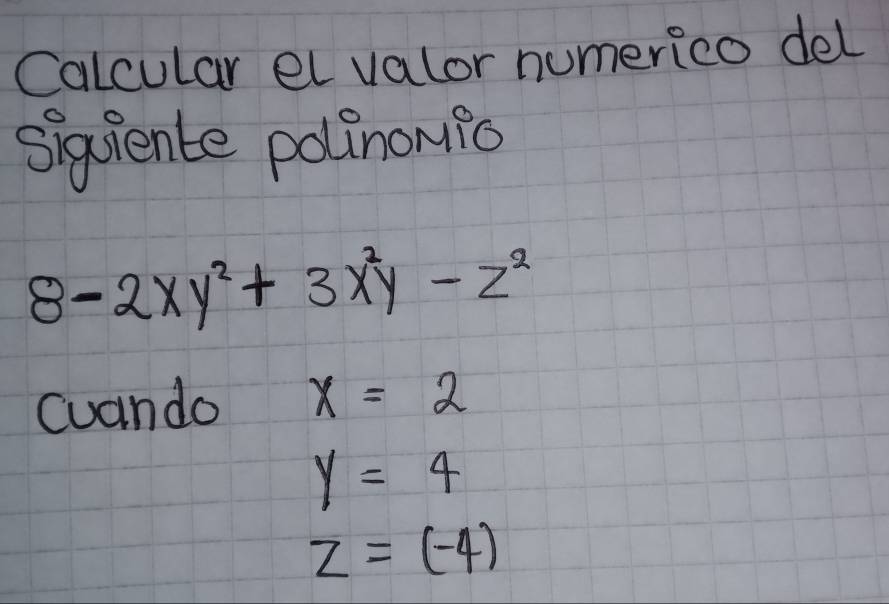 Calcular el valor numerico del
siguiente polinomio
8-2xy²+ 3x²y - z²
cuando x = 2
y = 4
z = (-4)